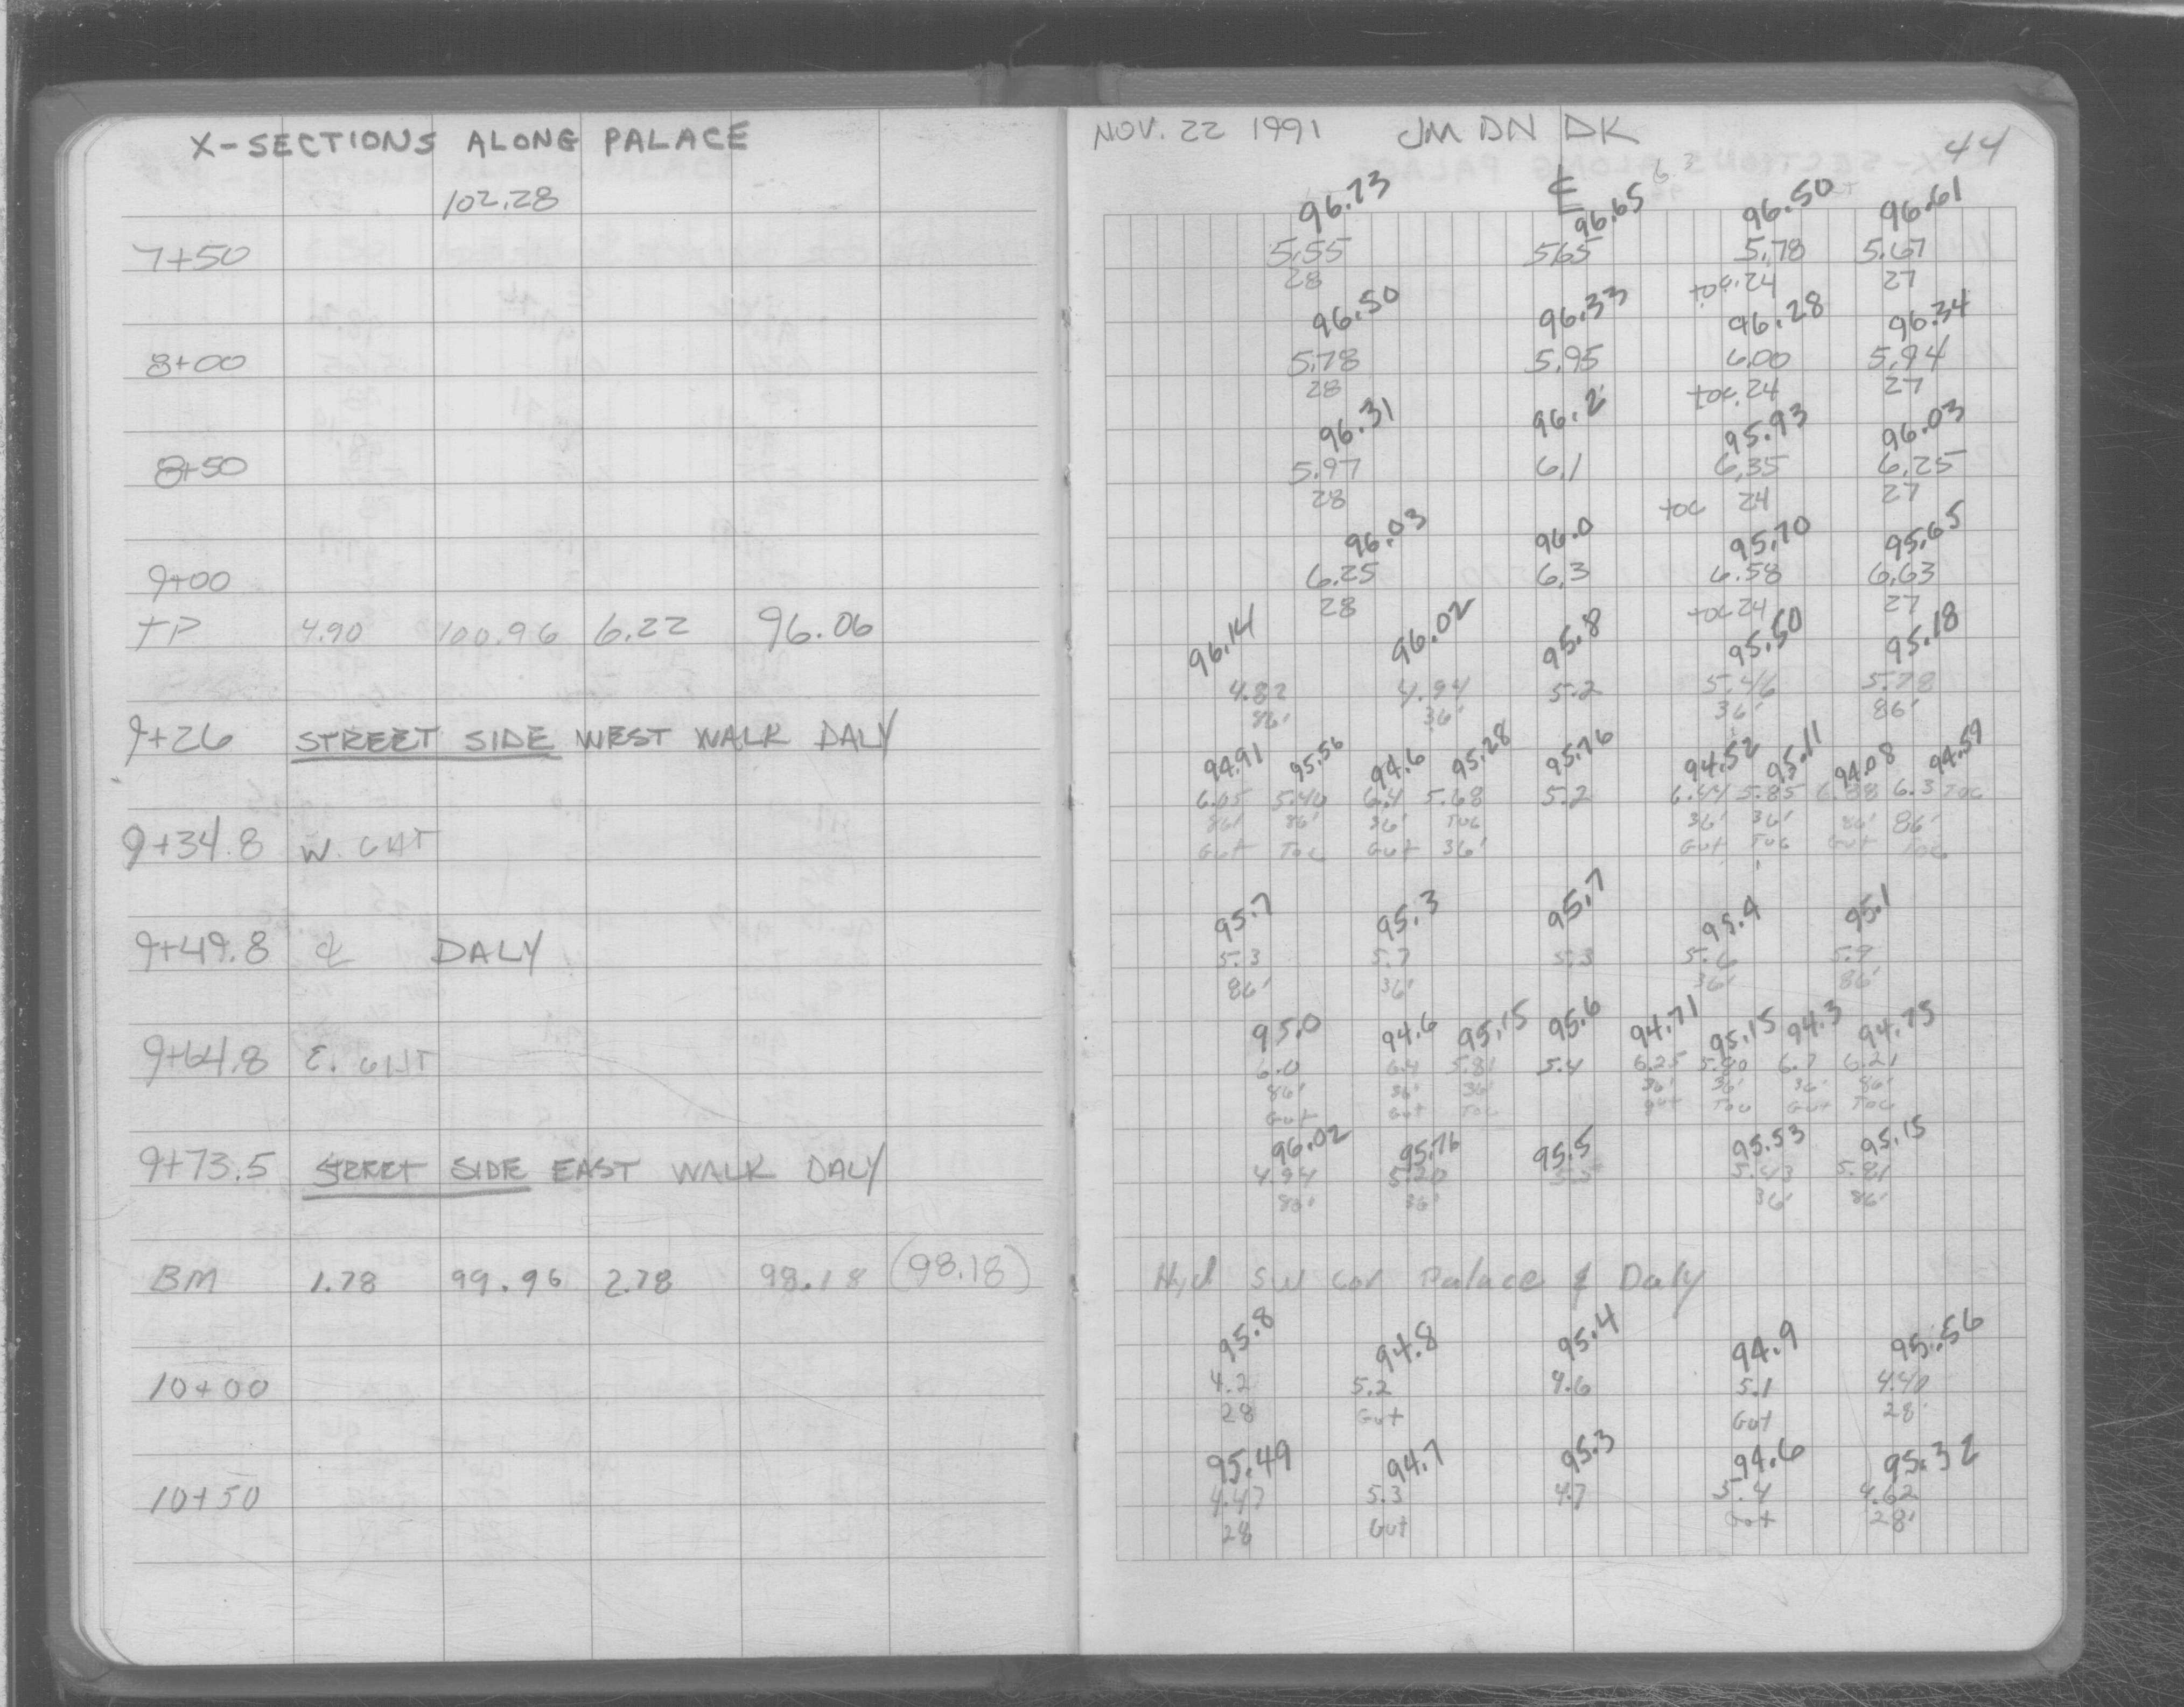 X-SECTIONS ALONG PALACE
102.28
7+50
8+00
8+50
9+00
TP 4.90 100.96 6.22 96.06
9+26 STREET SIDE WEST WALK DALY
9+34.8 W. GUT
9+49.8 ℄ DALY
9+64.8 E. GUT
9+73.5 STREET SIDE EAST WALK DALY
BM 1.78 99.96 2.78 98.18 (98.18)
10+00
10+50
NOV. 22 1991 JM DN DK 44
℄ 6.3
96.73 96.65 96.50 96.61
5.55 5.65 5.78 5.67
28 toc 24 27
96.50 96.33 96.28 96.34
5.78 5.95 6.00 5.94
28 toc 24 27
96.31 96.2 95.93 96.03
5.97 6.1 6.35 6.25
28 toc 24 27
96.03 96.0 95.70 95.65
6.25 6.3 6.58 6.63
28 toc 24 27
96.14 96.02 95.8 95.50 95.18
4.82 4.94 5.2 5.46 5.78
86' 36' 36' 86'
94.91 95.56 94.6 95.28 95.76 94.52 95.11 94.08 94.59
6.05 5.40 6.4 5.68 5.2 6.44 5.85 6.88 6.3 Toc
86' 86' 36' Toc 36' 36' 86' 86'
Gut Toc Gut 36' Gut Toc Gut Toc
95.7 95.3 95.7 95.4 95.1
5.3 5.7 5.3 5.6 5.9
86' 36' 36' 86'
95.0 94.6 95.15 95.6 94.71 95.15 94.3 94.75
6.0 6.4 5.81 5.4 6.25 5.80 6.7 6.21
86' 36' 36' 36' 36' 36' 86'
Gut Gut Toc gut Toc Gut Toc
96.02 95.76 95.5 95.53 95.15
4.94 5.20 5.5 5.43 5.81
86' 36' 36' 86'
Hyd SW Cor Palace & Daly
95.8 94.8 95.4 94.9 95.56
4.2 5.2 4.6 5.1 4.40
28 Gut Gut 28'
95.49 94.7 95.3 94.6 95.32
4.47 5.3 4.7 5.4 4.62
28 Gut Gut 28'